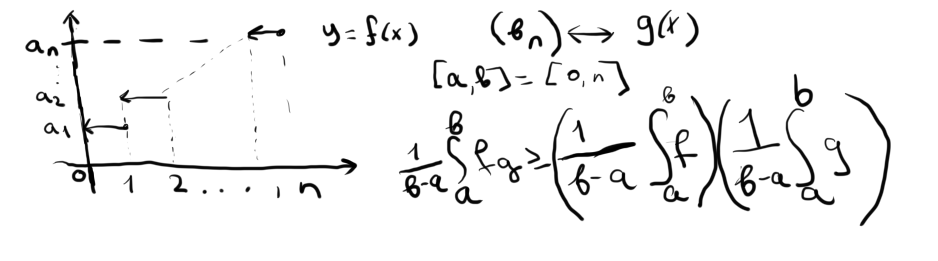 aₙ
⋮
a₂
a₁
0 1 2 . . . . , n
y = f(x) (bₙ) ⟷ g(x)
[a,b] = [0,n]
1/(b-a) ∫ₐᵇ fg ≥ (1/(b-a) ∫ₐᵇ f)(1/(b-a) ∫ₐᵇ g)